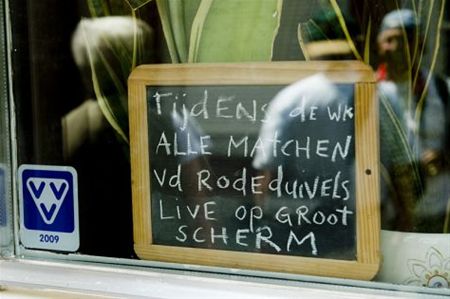 TIJDENS de WK
ALLE MATCHEN
vd RODEDUIVELS
LIVE OP GROOT
SCHERM
VVV
2009